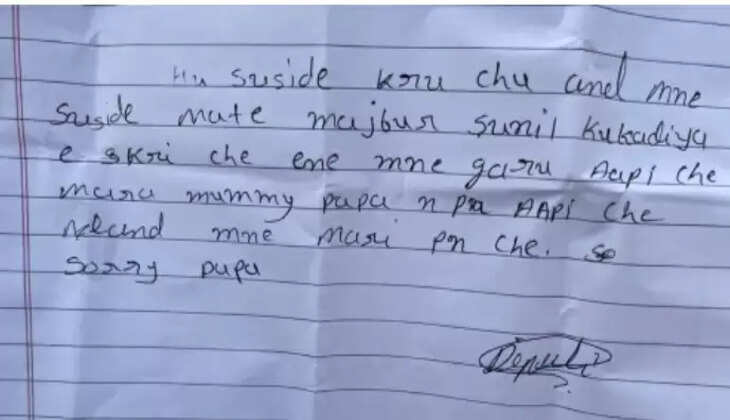 Hu suside kru chu and mne
suside mate majbur Sunil Kukadiya
e skri che ene mne garu Aapi che
mara mummy papa n pn AAPI che
and mne mari pn che. so
sorry papa